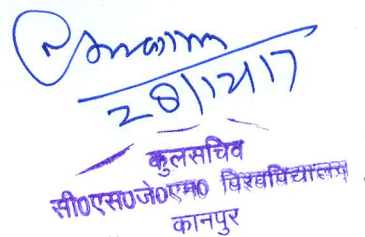 28/12/17
कुलसचिव
सी०एस०जे०एम० विश्वविद्यालय
कानपुर